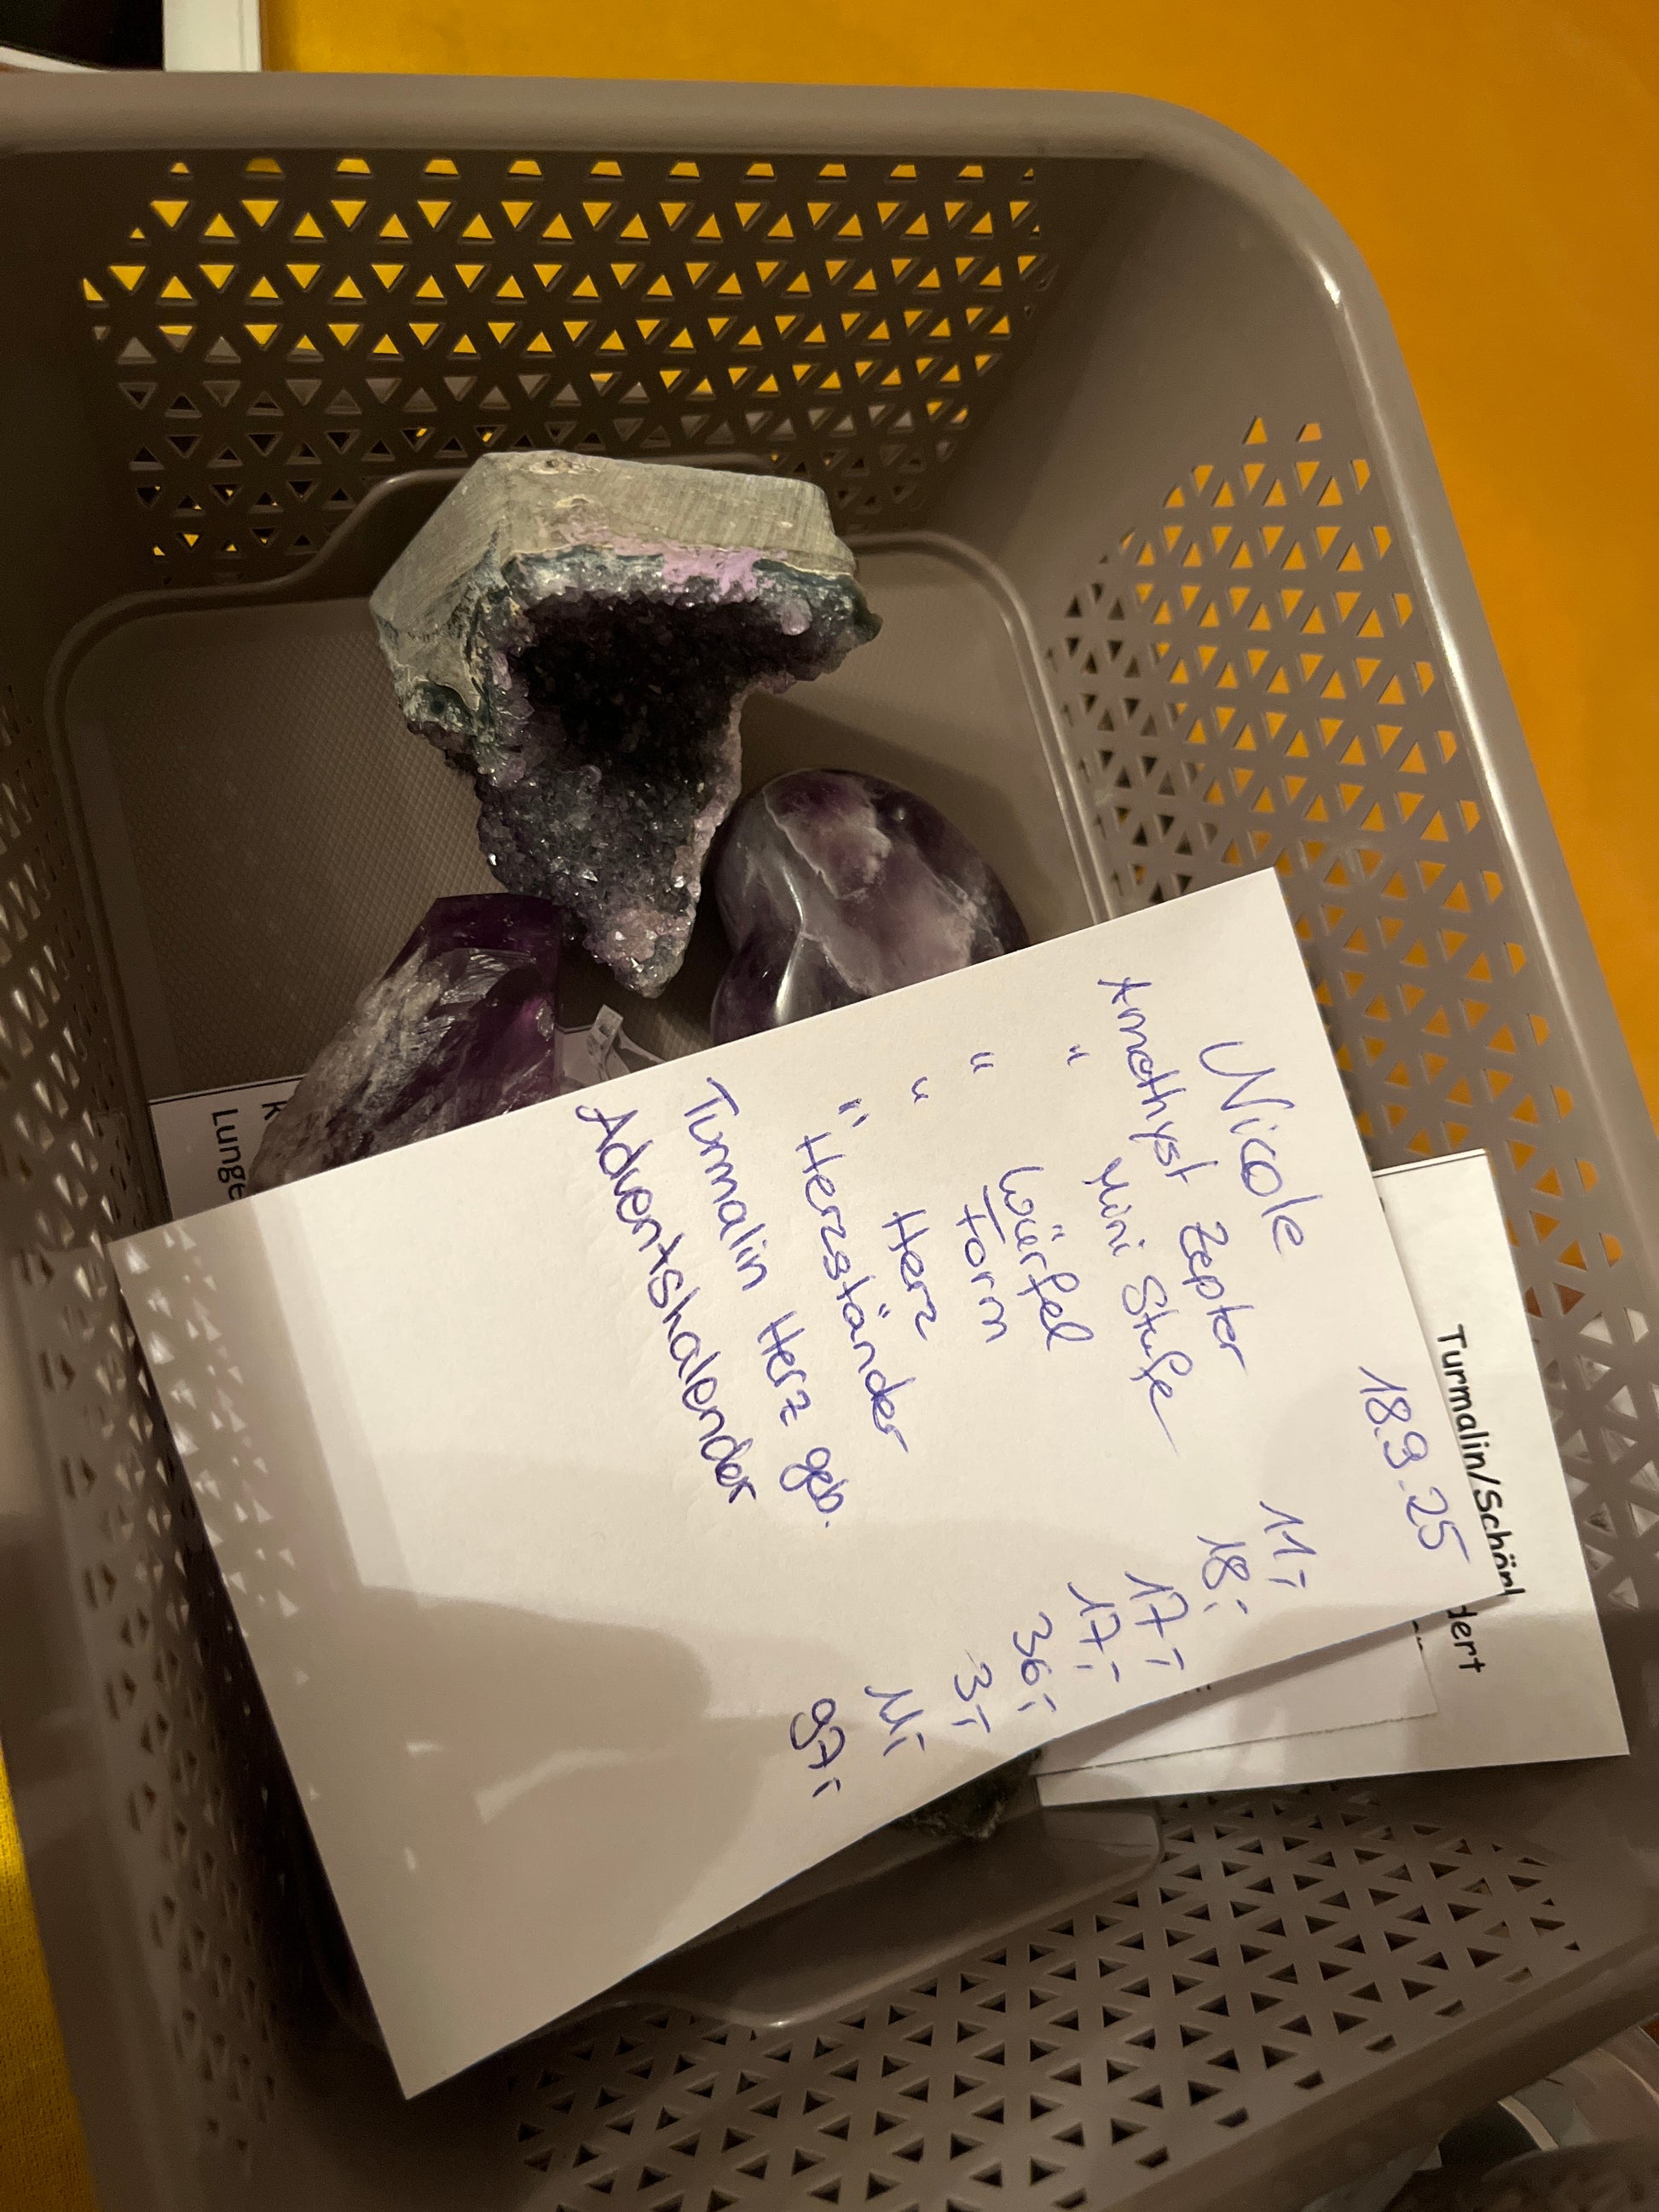 Nicole 18.9.25
Amethyst Zepter 11,-
" Mini Stufe 18,-
" Würfel 17,-
" Form 17,-
" Herz 36,-
" Herzständer 3,-
Turmalin Herz geb. 11,-
Adventskalender 97,-
Turmalin/Schörl
dert
K
Lunge